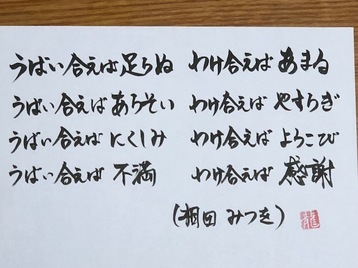 うばい合えば足らぬ わけ合えばあまる
うばい合えばあらそい わけ合えばやすらぎ
うばい合えばにくしみ わけ合えばよろこび
うばい合えば不満 わけ合えば感謝
(相田みつを)